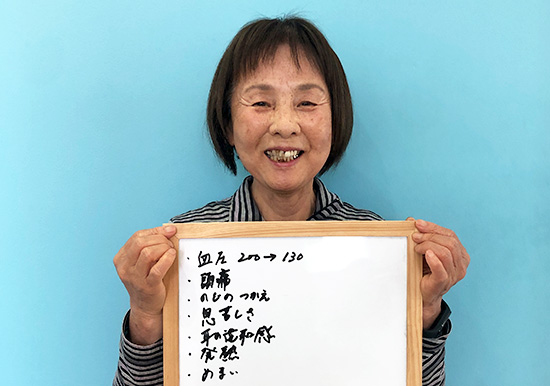 ・血圧 200→130
・頭痛
・のどの つかえ
・息苦しさ
・耳の違和感
・発熱
・めまい